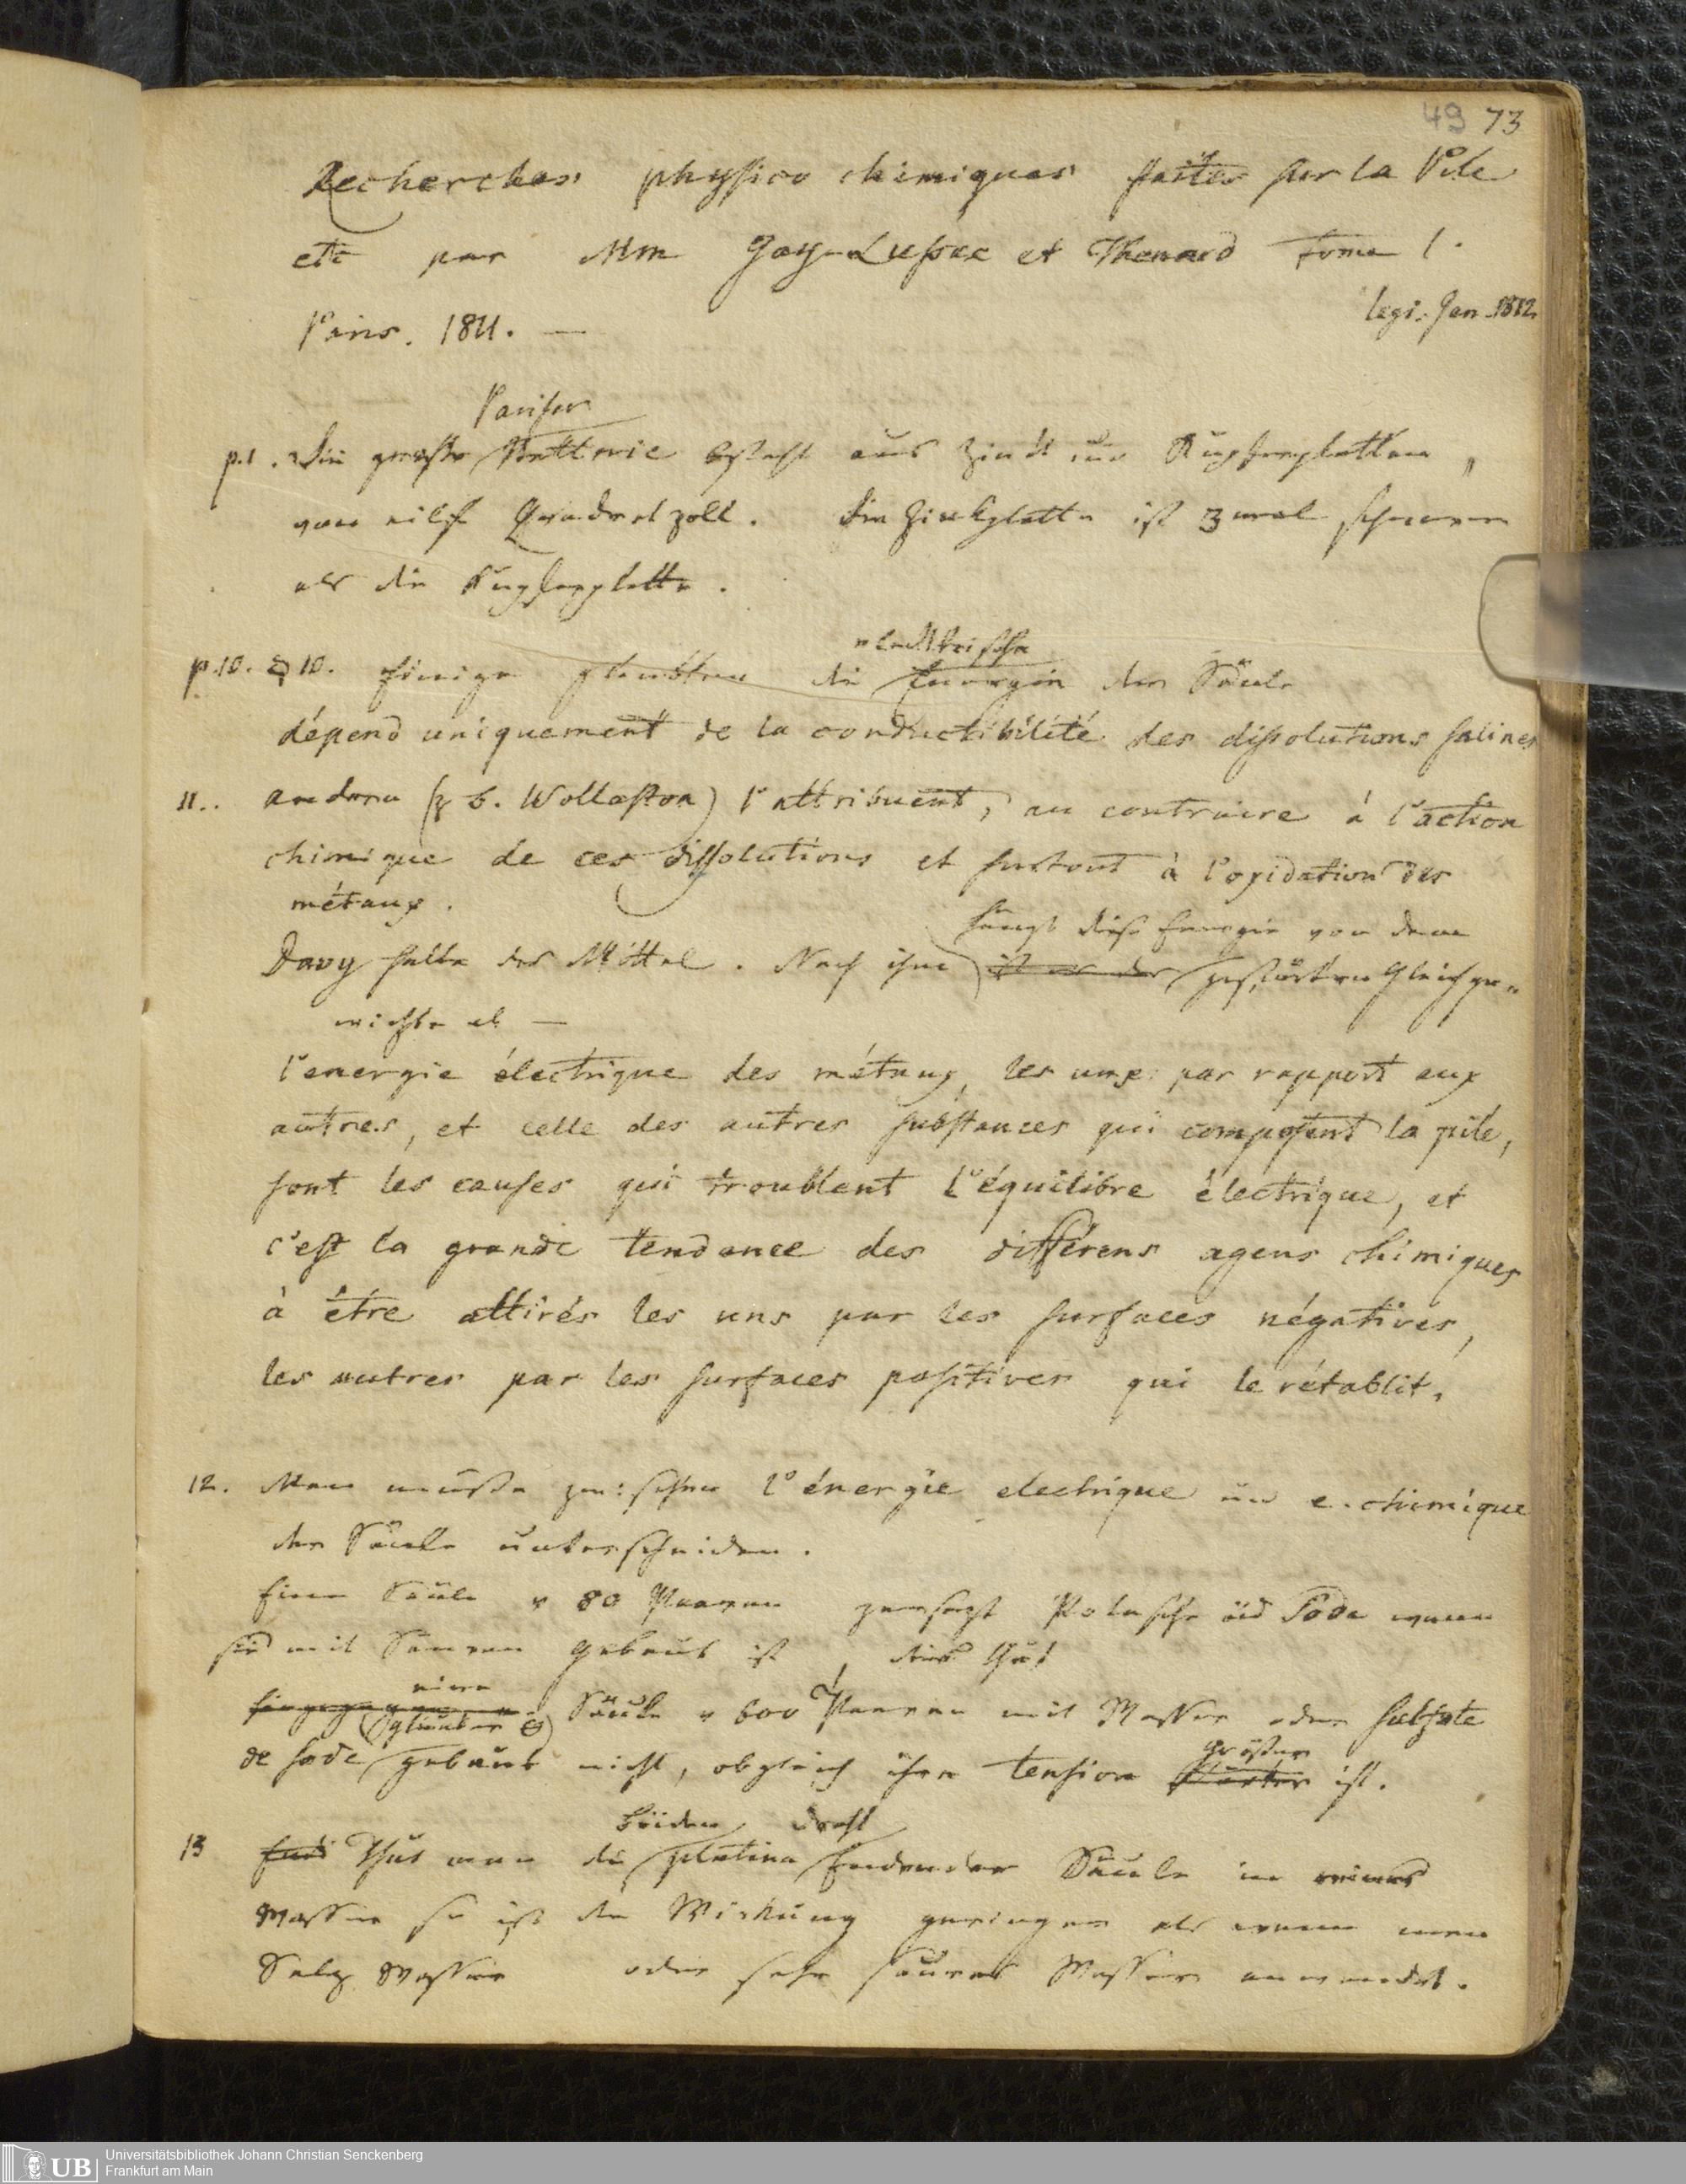 49 73
Recherches physico chimiques faites sur la Pile
etc par Mm Gay-Lussac et Thenard Tome 1.
legi. Jan. 1812.
Paris. 1811. —
Pariser
p.1. Die große Batterie besteht aus Zink und Kupferplatten,
von eilf Quadratzoll. Die Zinkplatte ist 3 mal schwerer
als die Kupferplatte.
elecktrische
p.10. 10. Einige glaubten die Energie der Säule
dépend uniquement de la conductibilité des dissolutions salines
11.. andere (z b. Wollaston) l'attribuent, au contraire à l'action
chimique de ces dissolutions et surtout à l'oxidation des
métaux.
hängt diese Energie von dem
Davy hält das Mittel. Nach ihm ist es der gestörten Gleichge-
wichte ab —
l'energie électrique des métaux, les uns par rapport aux
autres, et celle des autres substances qui composent la pile,
sont les causes qui troublent l'équilibre électrique, et
c'est la grande tendance des différens agens chimiques
à être attirés les uns par les surfaces négatives,
les autres par les surfaces positives qui le rétablit.
12. Man müsse zwischen l'énergie electrique und e. chimique
der Säule unterscheiden.
Eine Säule v 80 Paaren zersezt Potasche und Soda wenn
sie mit Säuren gebaut ist, dies thut
eine
Säule v 600 Paaren mit Wasser oder sulfate
de sode gebaut nicht, obgleich ihre tension
größer
stärker ist.
beiden Draht
13 Thut man die platina Enden der Säule in reines
Wasser so ist die Wirkung geringer als wenn man
Salz Wasser oder sehr saures Wasser anwendet.
UB Universitätsbibliothek Johann Christian Senckenberg
Frankfurt am Main